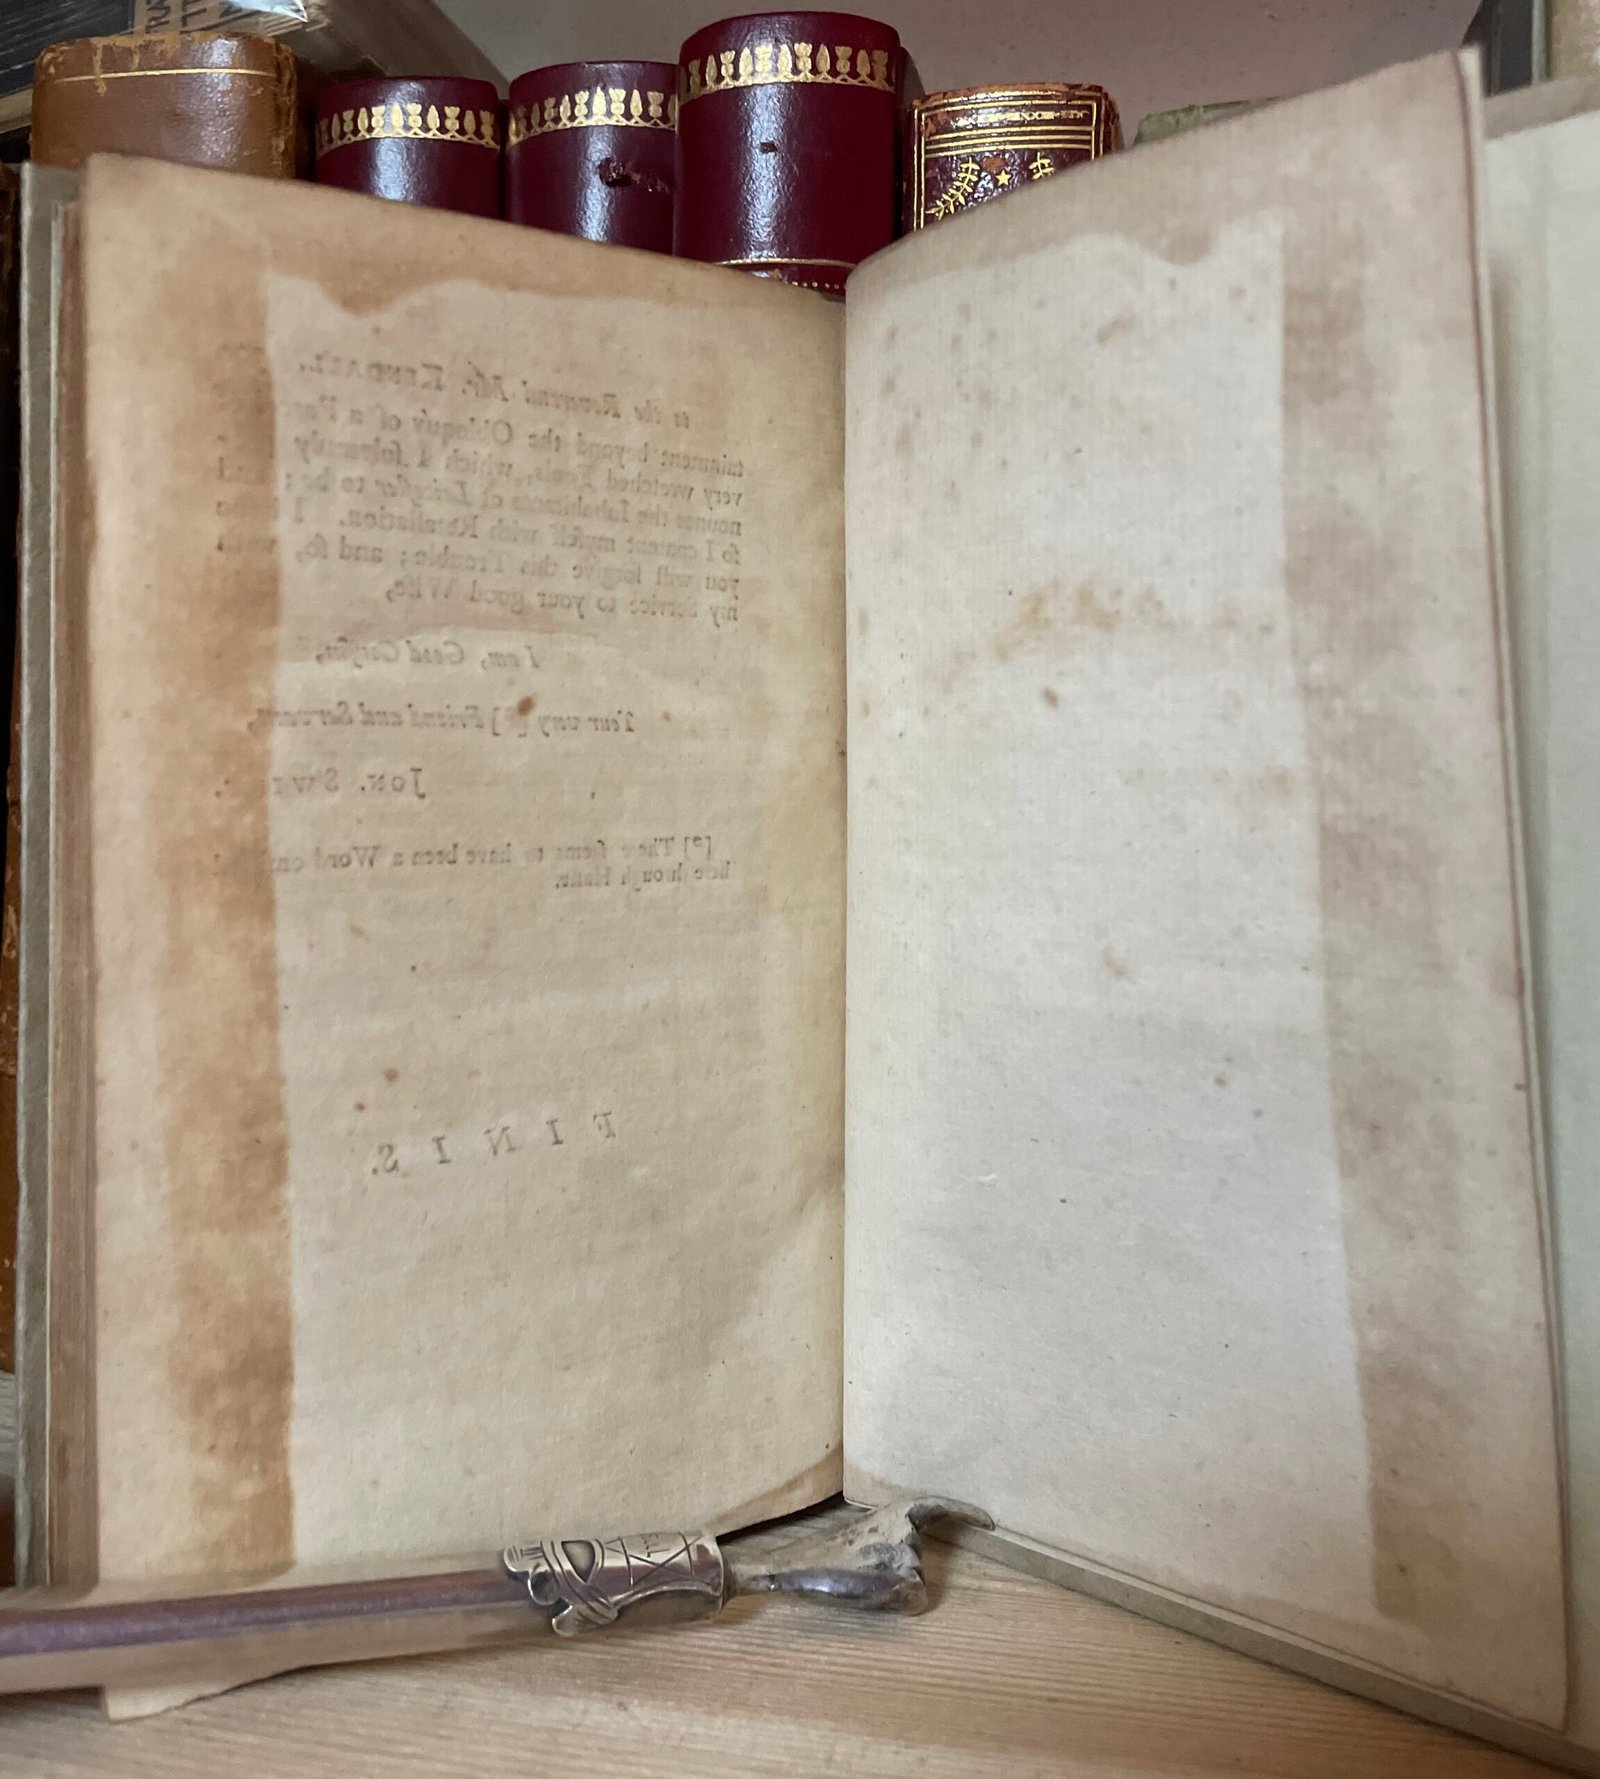 to the Reverend Mr. KENDALL.
tainment beyond the Obloquy of a Par
very wretched Fools, which I solemnly
nounce the Inhabitants of Leicester to be;
so I content myself with Retaliation. I
you will forgive this Trouble; and so, with
my Service to your good Wife,
I am, Good Cousin,
Your very [*] Friend and Servant,
JON. SWI
[*] There seems to have been a Word
here through Haste.
FINIS.